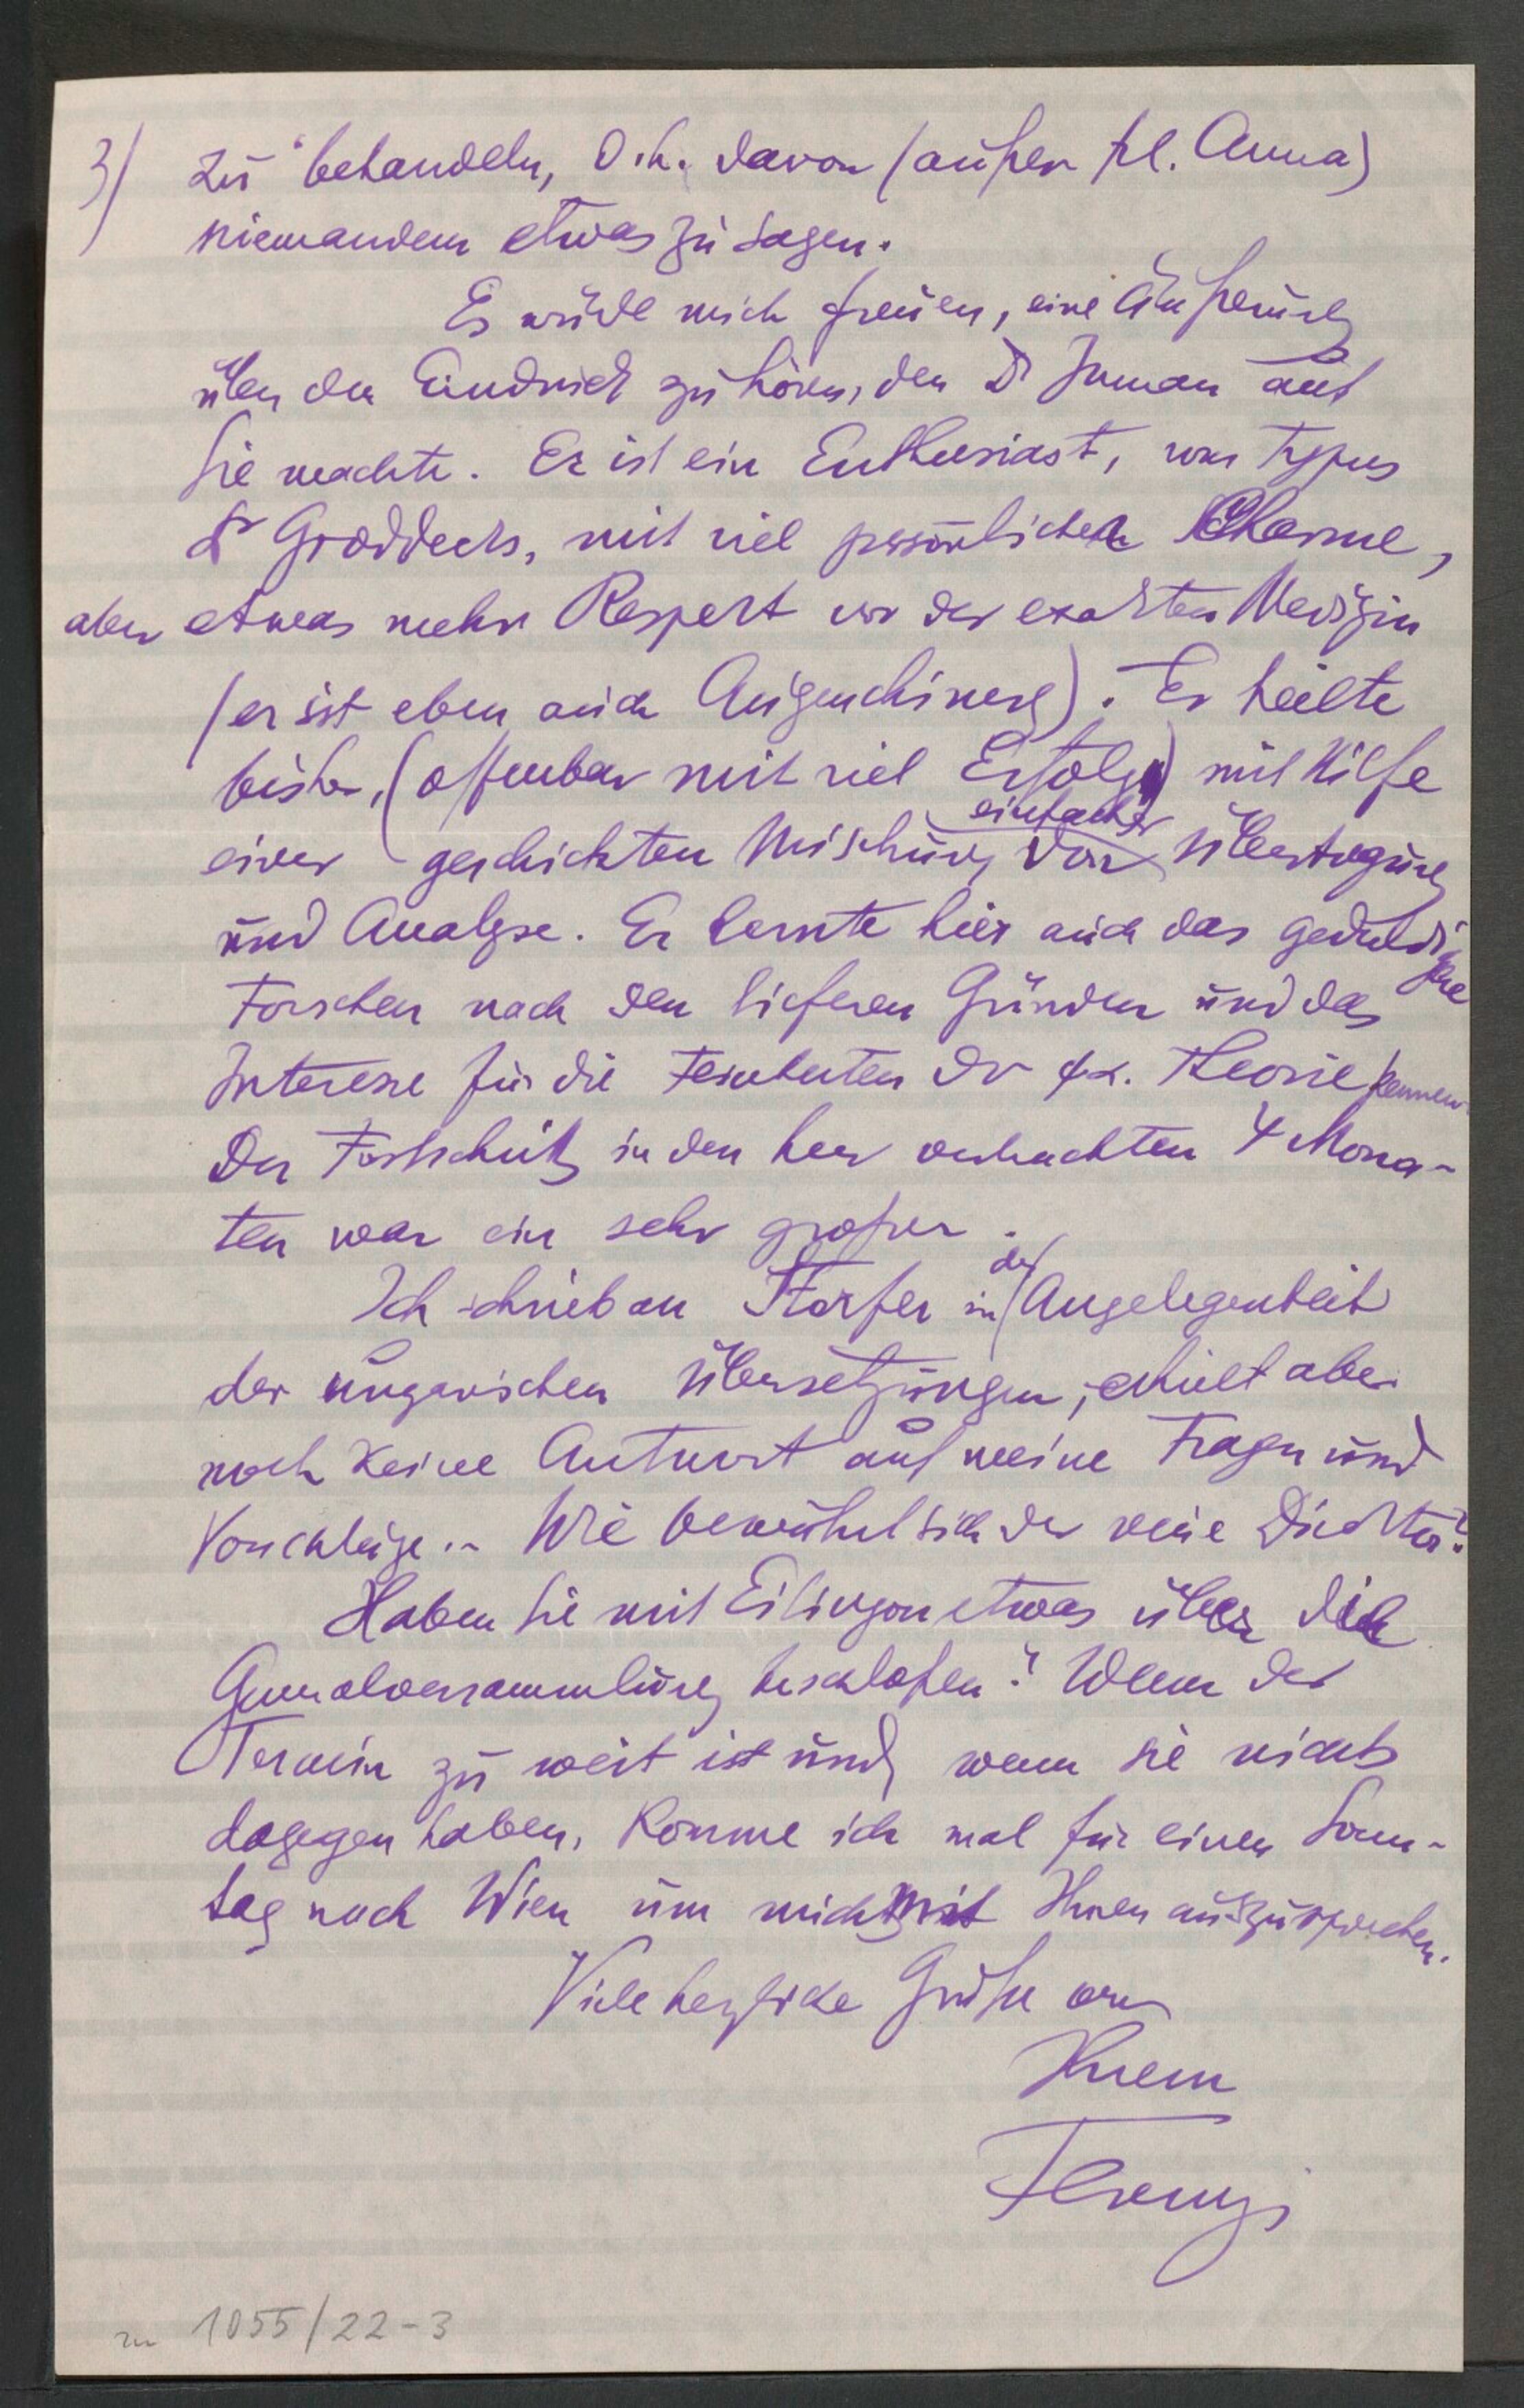 3) zu behandeln, d.h. davon (außer Frl. Anna)
niemandem etwas zu sagen.
Es würde mich freuen, eine Äußerung
über den Eindruck zu hören, den Dr Inman auf
Sie machte. Er ist ein Enthusiast, vom Typus
Dr Groddecks, mit viel persönlichem Charme,
aber etwas mehr Respekt vor der exakten Medizin
(er ist eben auch Augenchirurg). Er heilte
bisher, (offenbar mit viel Erfolg) mit Hilfe
einer geschickten Mischung von einfacher Übertragung
und Analyse. Er lernte hier auch das geduldige
Forschen nach den tieferen Gründen und das
Interesse für die Feinheiten der ψα. Theorie kennen.
Der Fortschritt in den hier verbrachten 4 Mona-
ten war ein sehr großer.
Ich schrieb an Storfer in der Angelegenheit
der ungarischen Übersetzungen, erhielt aber
noch keine Antwort auf meine Fragen und
Vorschläge. – Wie bewährt sich der neue Direktor?
Haben Sie mit Eitingon etwas über die
Generalversammlung beschloßen? Wenn der
Termin zu weit ist und wenn Sie nichts
dagegen haben, komme ich mal für einen Sonn-
tag nach Wien um mich mit Ihnen auszusprechen.
Viele herzliche Grüße von
Ihrem
Ferenczi
zu 1055/22-3